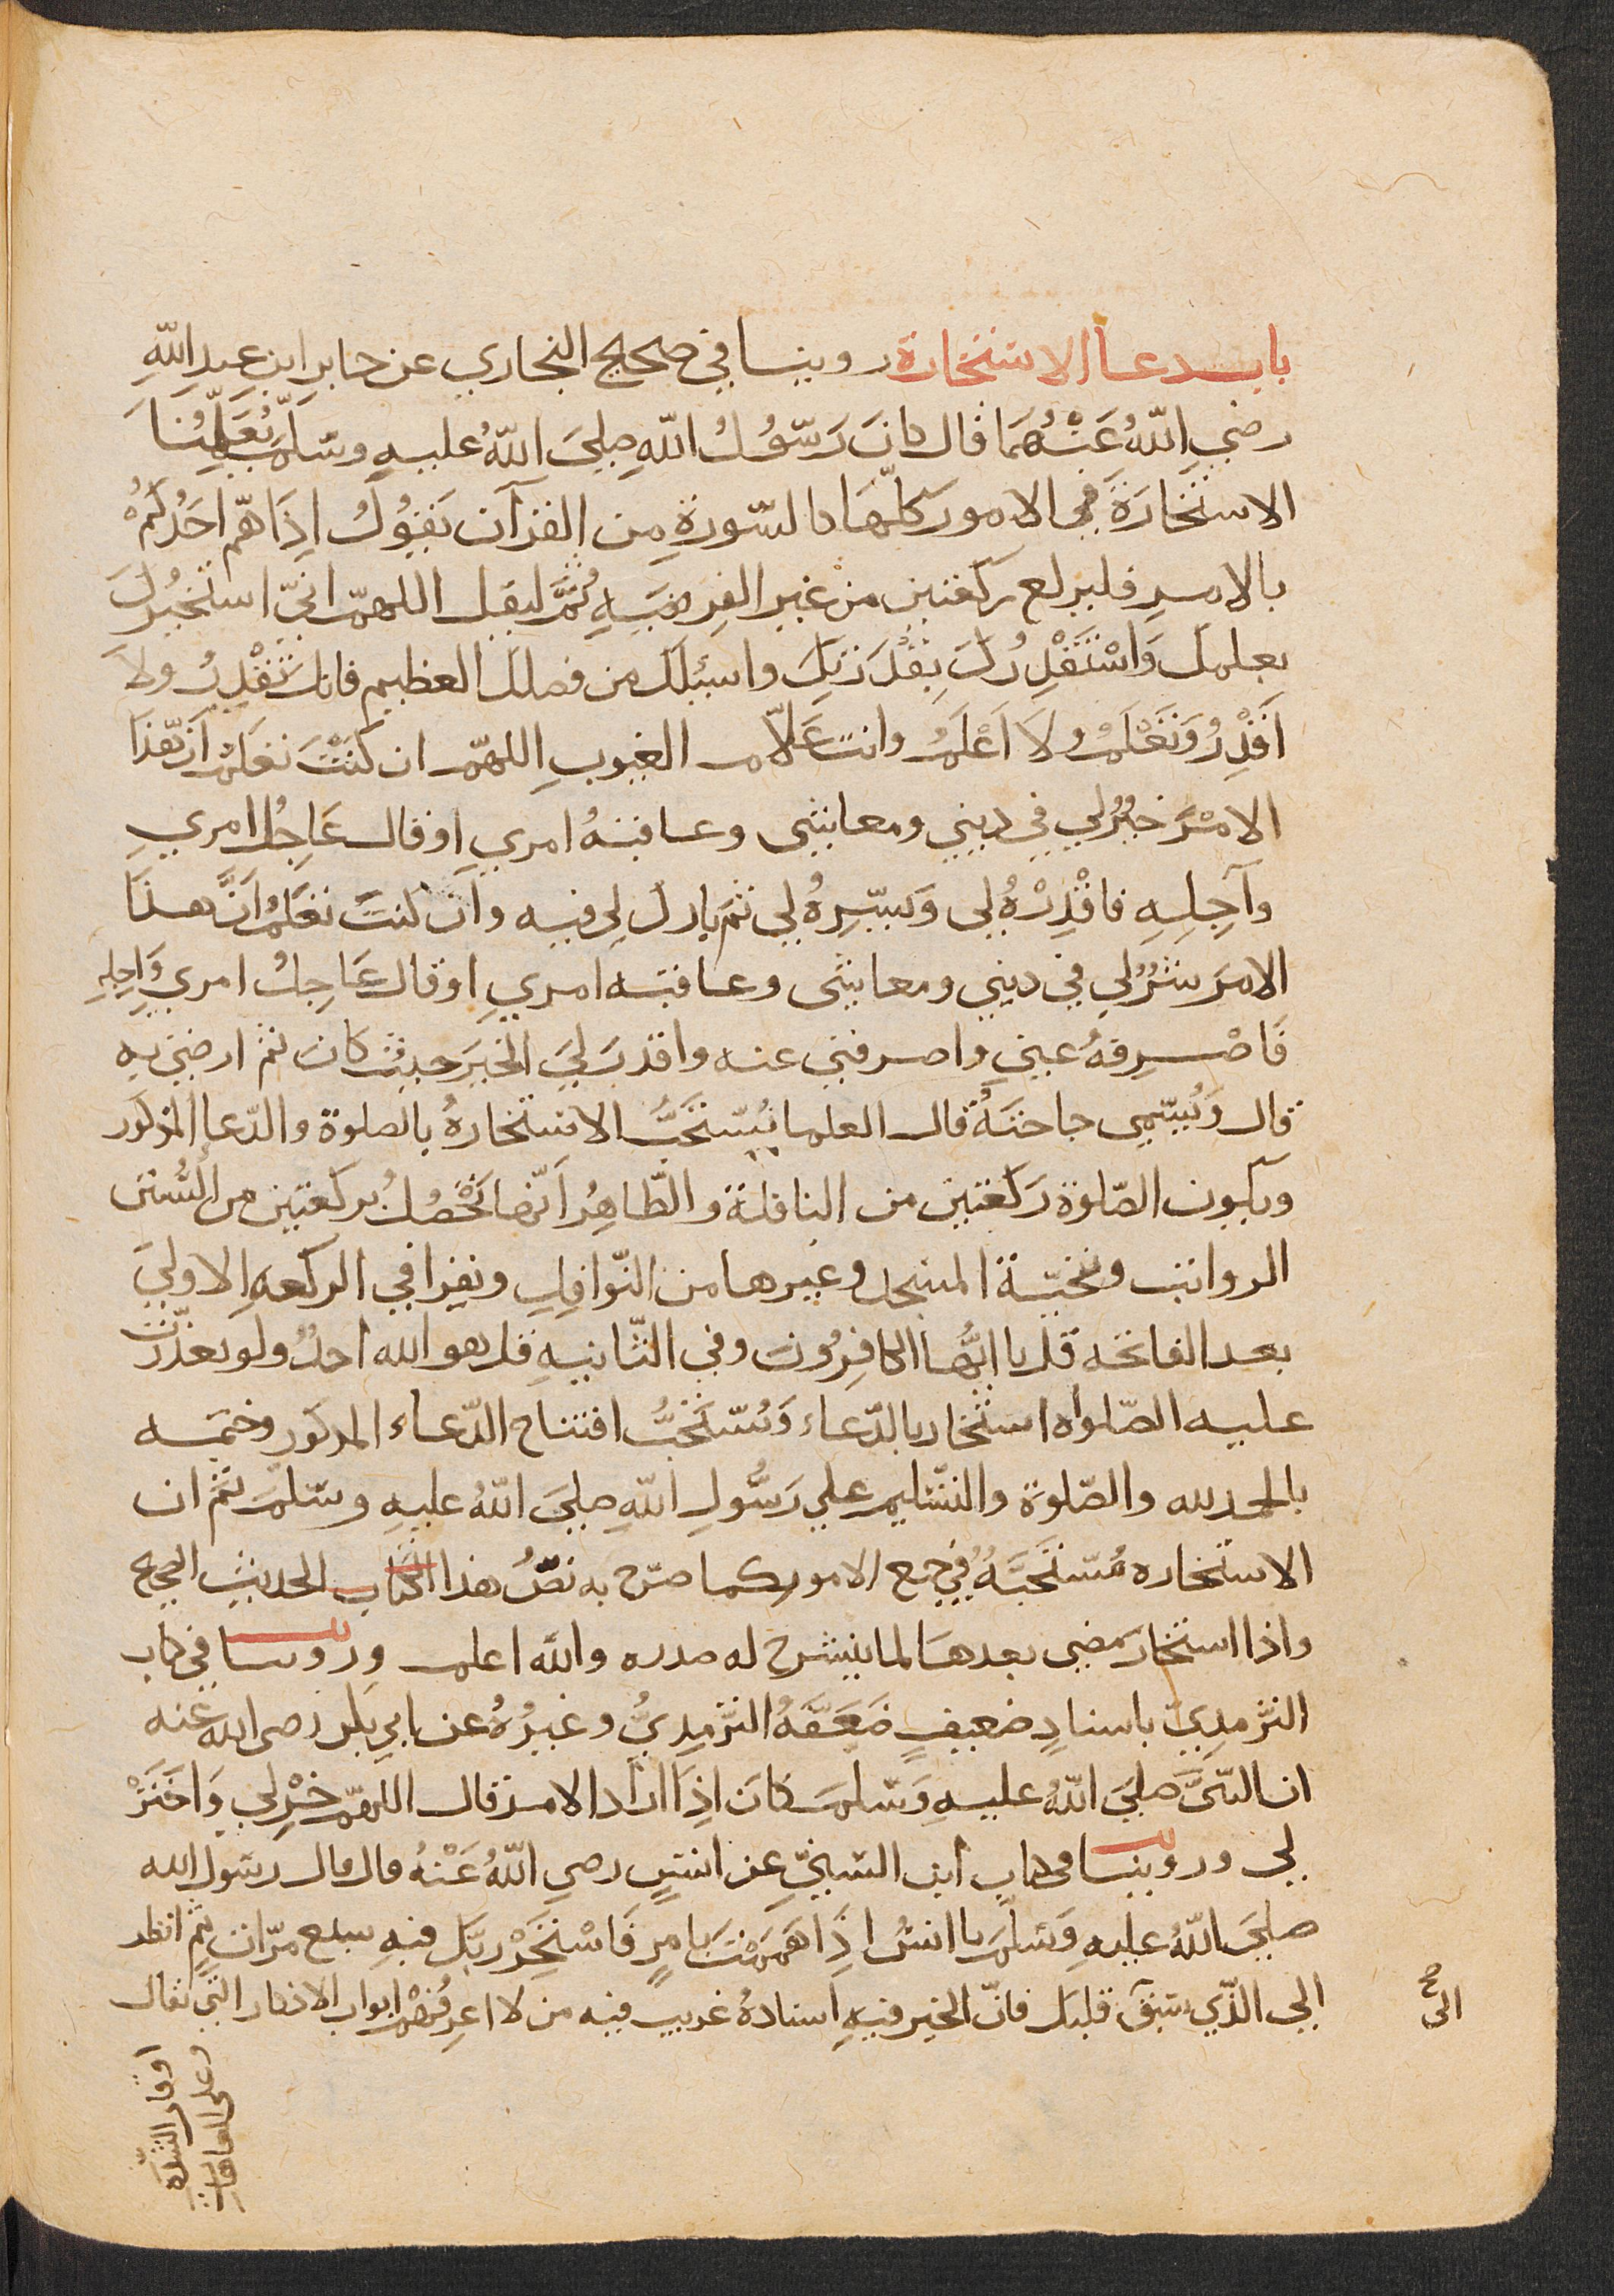 باب دعا الاستخارة روينا في صحيح البخاري عن جابر ابن عبد اللهِ
رضي اللهُ عَنْهُمَا قال كانَ رَسُولُ اللهِ صلي اللهُ عليهِ وسلم يُعَلِّمُنَا
الاستخارَةَ في الامور كلّهَا كالسّورةِ مِن القرآن يَقُولُ اِذَا هَمّ احَدُكُمْ
بالامرِ فليركع ركعتين من غير الفريضَهِ ثُمَّ ليقل اللهمّ انيّ استخيرُكَ
بعلمك وَاسْتَقْدِرُكَ بِقُدْرَتِكَ واسئلك من فضلك العظيم فانك تَقْدِرُ ولَا
اَقْدِرُ وَتَعْلَمُ وَلَا اَعْلَمُ وانت عَلّام الغيوبِ اللهمّ ان كُنْتَ تعلمُ اَنّ هَذَا
الامْرَ خيرٌ لي في ديني ومعاشي وعاقبهُ امري او قال عَاجِلُ امري
وآجِلِهِ فاقْدِرْهُ لي وَيسّرِهُ لي ثمّ بارك لِي فيه وان كنتَ تَعْلَمُ اَنَّ هذَا
الامرَ شرٌّ لي في ديني ومعاشي وعاقبه امريِ او قال عَاجِلُ امري وَاجِلِهِ
فَاصْرِفهُ عني واصرفني عنه واقدر ليَ الخيَر حيثُ كانَ ثم ارضني به
قال وَيُسّمِى حاجتَهُ قال العلما يُسْتَحَبُّ الاستخارةُ بالصلوة والدّعا المذكور
ويكون الصّلوة رَكعَتين من النافلة والظّاهِرُ اَنّها تَحْصُلُ بركعتين من السُّنن
الرواتب وتحيّة المسجد وغيرها من النّوافِلِ ويقرا في الركعهِ الاوليَ
بعد الفاتحه قل يا ايُّها الكافِرُونَ وفي الثّانيهِ قل هو الله احدٌ ولو تعذّرت
عليه الصّلواه استخار بالدّعاء وَيُسْتَحَبُّ افتتاح الدّعاء المذكور وختمه
بالحمد لله والصّلوة والتسّليم علي رَسُولِ اللهِ صليَ اللهُ عليهِ وسلم ثم ان
الاستخاره مُسْتَحَبّهٌ في جميع الامور كما صرّح به نصُّ هذا الكتاب الحديث الصحيح
واذا استخار مضي بعدهَا لما ينشرح له صدره والله اعلم وروينا في كتاب
الترّمِذيّ باسنادٍ ضعيفٍ ضَعّفَهُ الترّمِذيُّ وغيرُهُ عن ابي بكر رضى الله عنه
ان النبىَّ صليَ اللهُ عليهِ وَسّلمَ كانَ اِذَا ارَادَ الامر قال اللهمّ خِرْ لي وَاخْتَرْ
لي وروينا في كتاب ابن السُّنيِّ عن انسٍ رضي اللهُ عَنْهُ قال قال رسول الله
صليَ اللهُ عليهِ وَسلّم يا انسُ اِذَا هَمَمْتَ بامرٍ فَاسْتَخِرْ ربّك فيهِ سبع مرّاتٍ ثمّ انظر
الي الذّي سَبقَ قلبك فانّ الخير فيهِ اسنادهُ غريب فيه من لا اعرفُهُمْ ابواب الاذكار التي تقال
الى صح
اوقات الشّدّة
وعلى العاهات